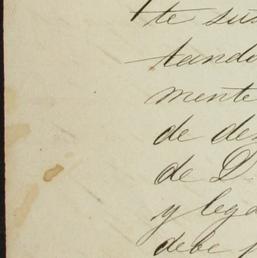 te sus
tando
mente
de des
de D
y lega
debe p